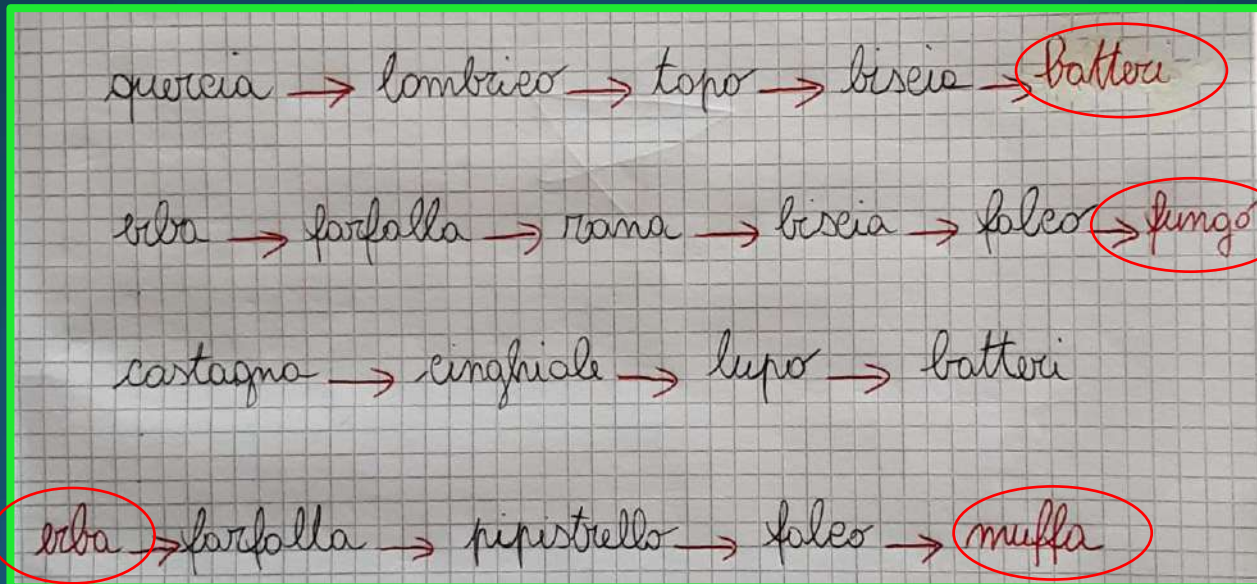 quercia → lombrico → topo → biscia → batteri
erba → farfalla → rana → biscia → falco → fungo
castagna → cinghiale → lupo → batteri
erba → farfalla → pipistrello → falco → muffa